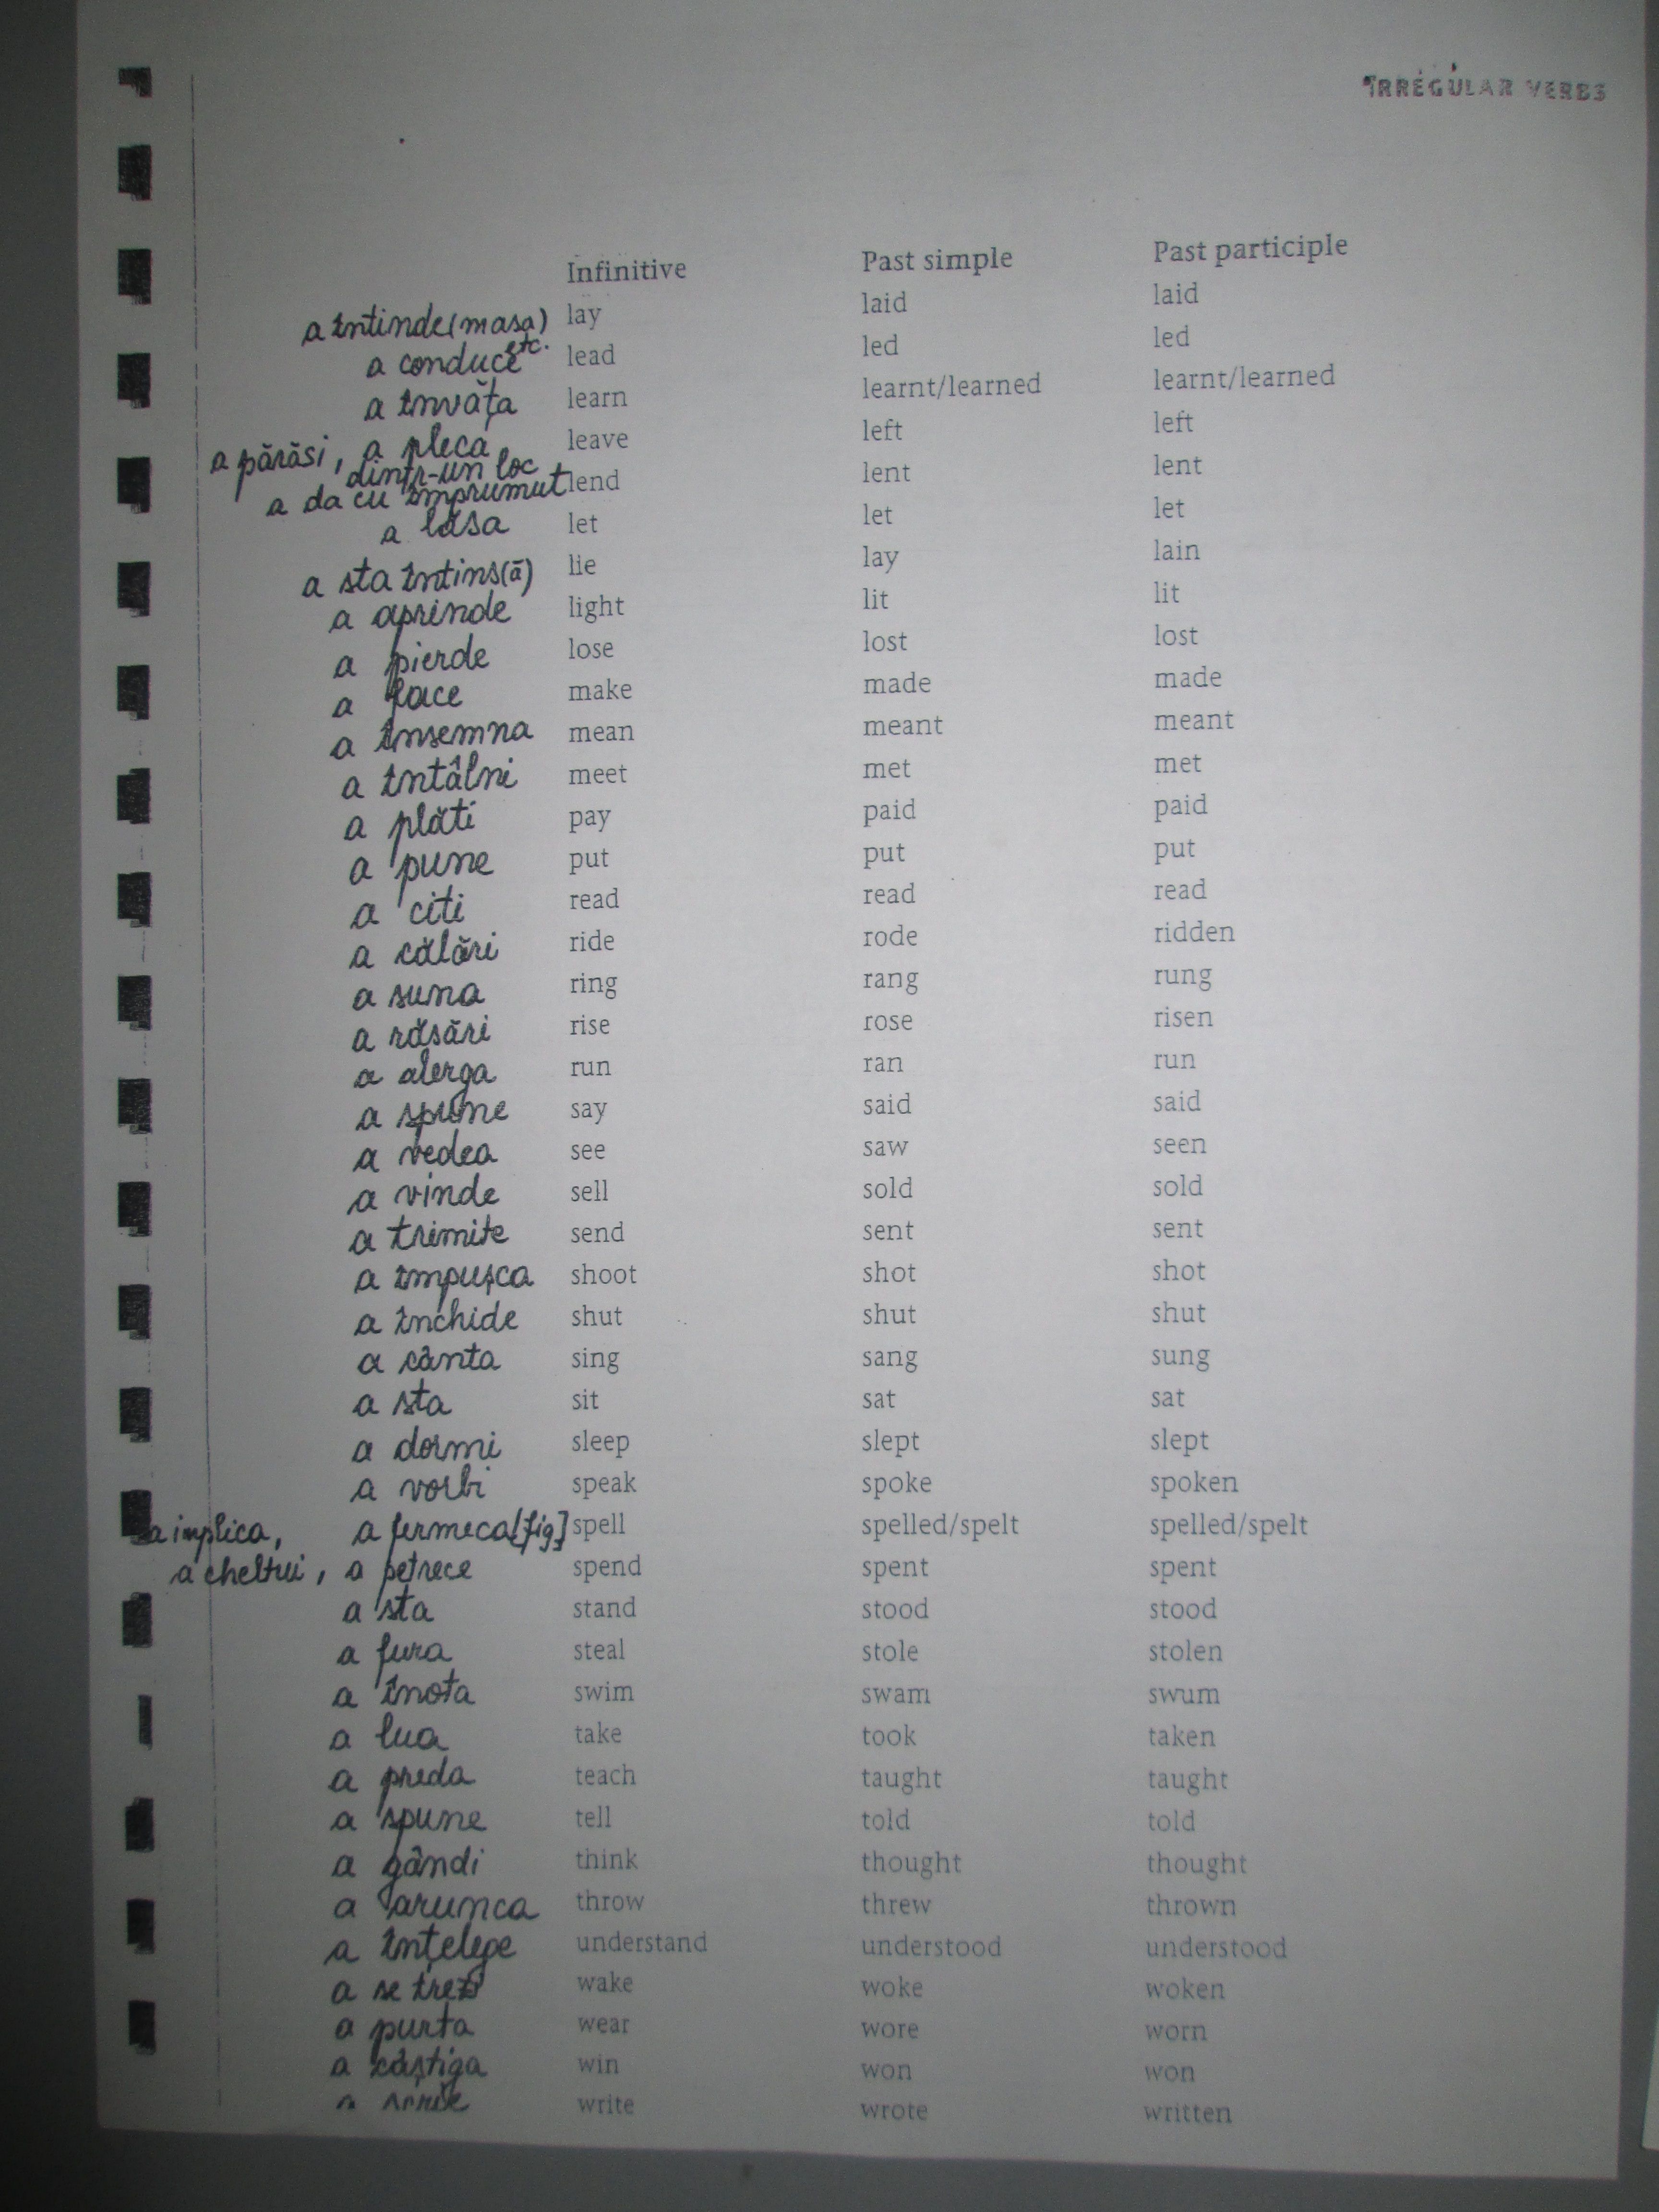 IRREGULAR VERBS
Infinitive Past simple Past participle
a întinde(masa) lay laid laid
etc.
a conduce lead led led
a învăța learn learnt/learned learnt/learned
a părăsi, a pleca leave left left
dintr-un loc
a da cu împrumut lend lent lent
a lăsa let let let
a sta întins(ă) lie lay lain
a aprinde light lit lit
a pierde lose lost lost
a face make made made
a însemna mean meant meant
a întâlni meet met met
a plăti pay paid paid
a pune put put put
a citi read read read
a călări ride rode ridden
a suna ring rang rung
a răsări rise rose risen
a alerga run ran run
a spune say said said
a vedea see saw seen
a vinde sell sold sold
a trimite send sent sent
a împușca shoot shot shot
a închide shut shut shut
a cânta sing sang sung
a sta sit sat sat
a dormi sleep slept slept
a vorbi speak spoke spoken
a implica, a fermeca[fig] spell spelled/spelt spelled/spelt
a cheltui, a petrece spend spent spent
a sta stand stood stood
a fura steal stole stolen
a înota swim swam swum
a lua take took taken
a preda teach taught taught
a spune tell told told
a gândi think thought thought
a arunca throw threw thrown
a înțelege understand understood understood
a se trezi wake woke woken
a purta wear wore worn
a câștiga win won won
a scrie write wrote written